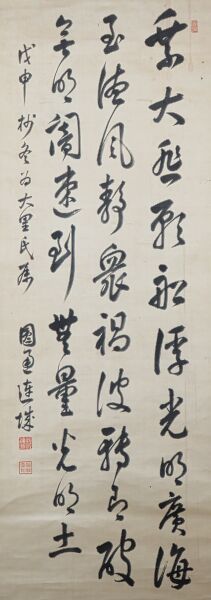 乘大悲願船浮光明廣海
至德風静衆禍波轉即破
無明闇速到無量光明土
戊申杪冬為大里氏屬 圓通連城